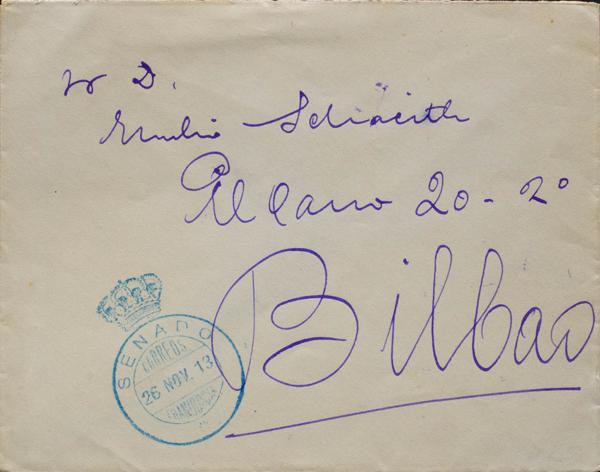 Sr D.
Emilio
20-2º
Bilbao
SENADO
CORREOS
26 NOV. 13
FRANQUICIA